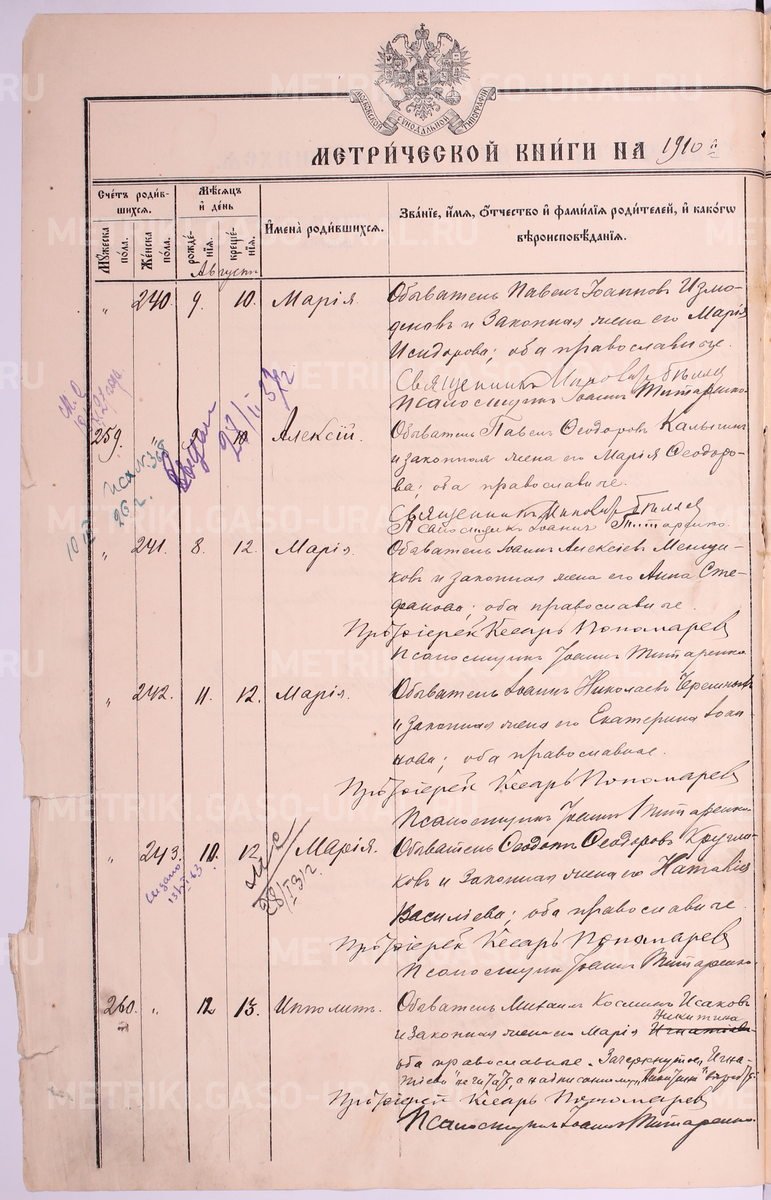 МОСКОВСКОЙ СѴНОДАЛЬНОЙ ТИПОГРАФІИ
МЕТРИ́ЧЕСКОЙ КНИ́ГИ НА 1910 й
Счетъ роди́вшихся.
Мꙋжеска по́ла.
Же́нска по́ла.
Мѣсяцъ и҆ де́нь
рожде́нїя.
креще́нїя.
И҆мена̀ роди́вшихся.
Зва́нїе, и҆́мя, ѻ҆́тчество и҆ фами́лїя роди́телей, и҆ како́гѡ вѣроисповѣ́данїя.
Августъ
" 240. 9. 10. Марія.
Обыватель Павелъ Іоанновъ Измо-
деновъ и законная жена его Марія
Исидорова; оба православные.
Священникъ
Псаломщикъ Іоаннъ Титаренко
259. " 10. Алексій.
Обыватель Павелъ Ѳеодоровъ Калыгинъ
и законная жена его Марія Ѳеодоро-
ва; оба православные.
Священникъ
Псаломщикъ Іоаннъ Титаренко.
" 241. 8. 12. Марія.
Обыватель Іоаннъ Алексіевъ
ковъ и законная жена его Анна Сте-
фанова; оба православные.
Протоіерей Кесарь Пономаревъ
Псаломщикъ Іоаннъ Титаренко
" 242. 11. 12. Марія.
Обыватель Іоаннъ Николаевъ
и законная жена его Екатерина
нова; оба православные.
Протоіерей Кесарь Пономаревъ
Псаломщикъ Іоаннъ Титаренко
" 243. 10. 12. Марія.
Обыватель Ѳеодотъ Ѳеодоровъ Кругла-
ковъ и законная жена его Наталія
Василіева; оба православные.
Протоіерей Кесарь Пономаревъ
Псаломщикъ Іоаннъ Титаренко.
260. " 12 13. Ипполитъ.
Обыватель Михаилъ Космин Исаковъ
Никитина
и законная жена его Марія Игнатіева
оба православные. Зачеркнутое „Игна-
тіева" не читать, а надписанному „Никитина" вѣрить.
Протоіерей Кесарь Пономаревъ
Псаломщикъ Іоаннъ Титаренко.
Выдан
28/II 32
METRIKI.GASO-URAL.RU